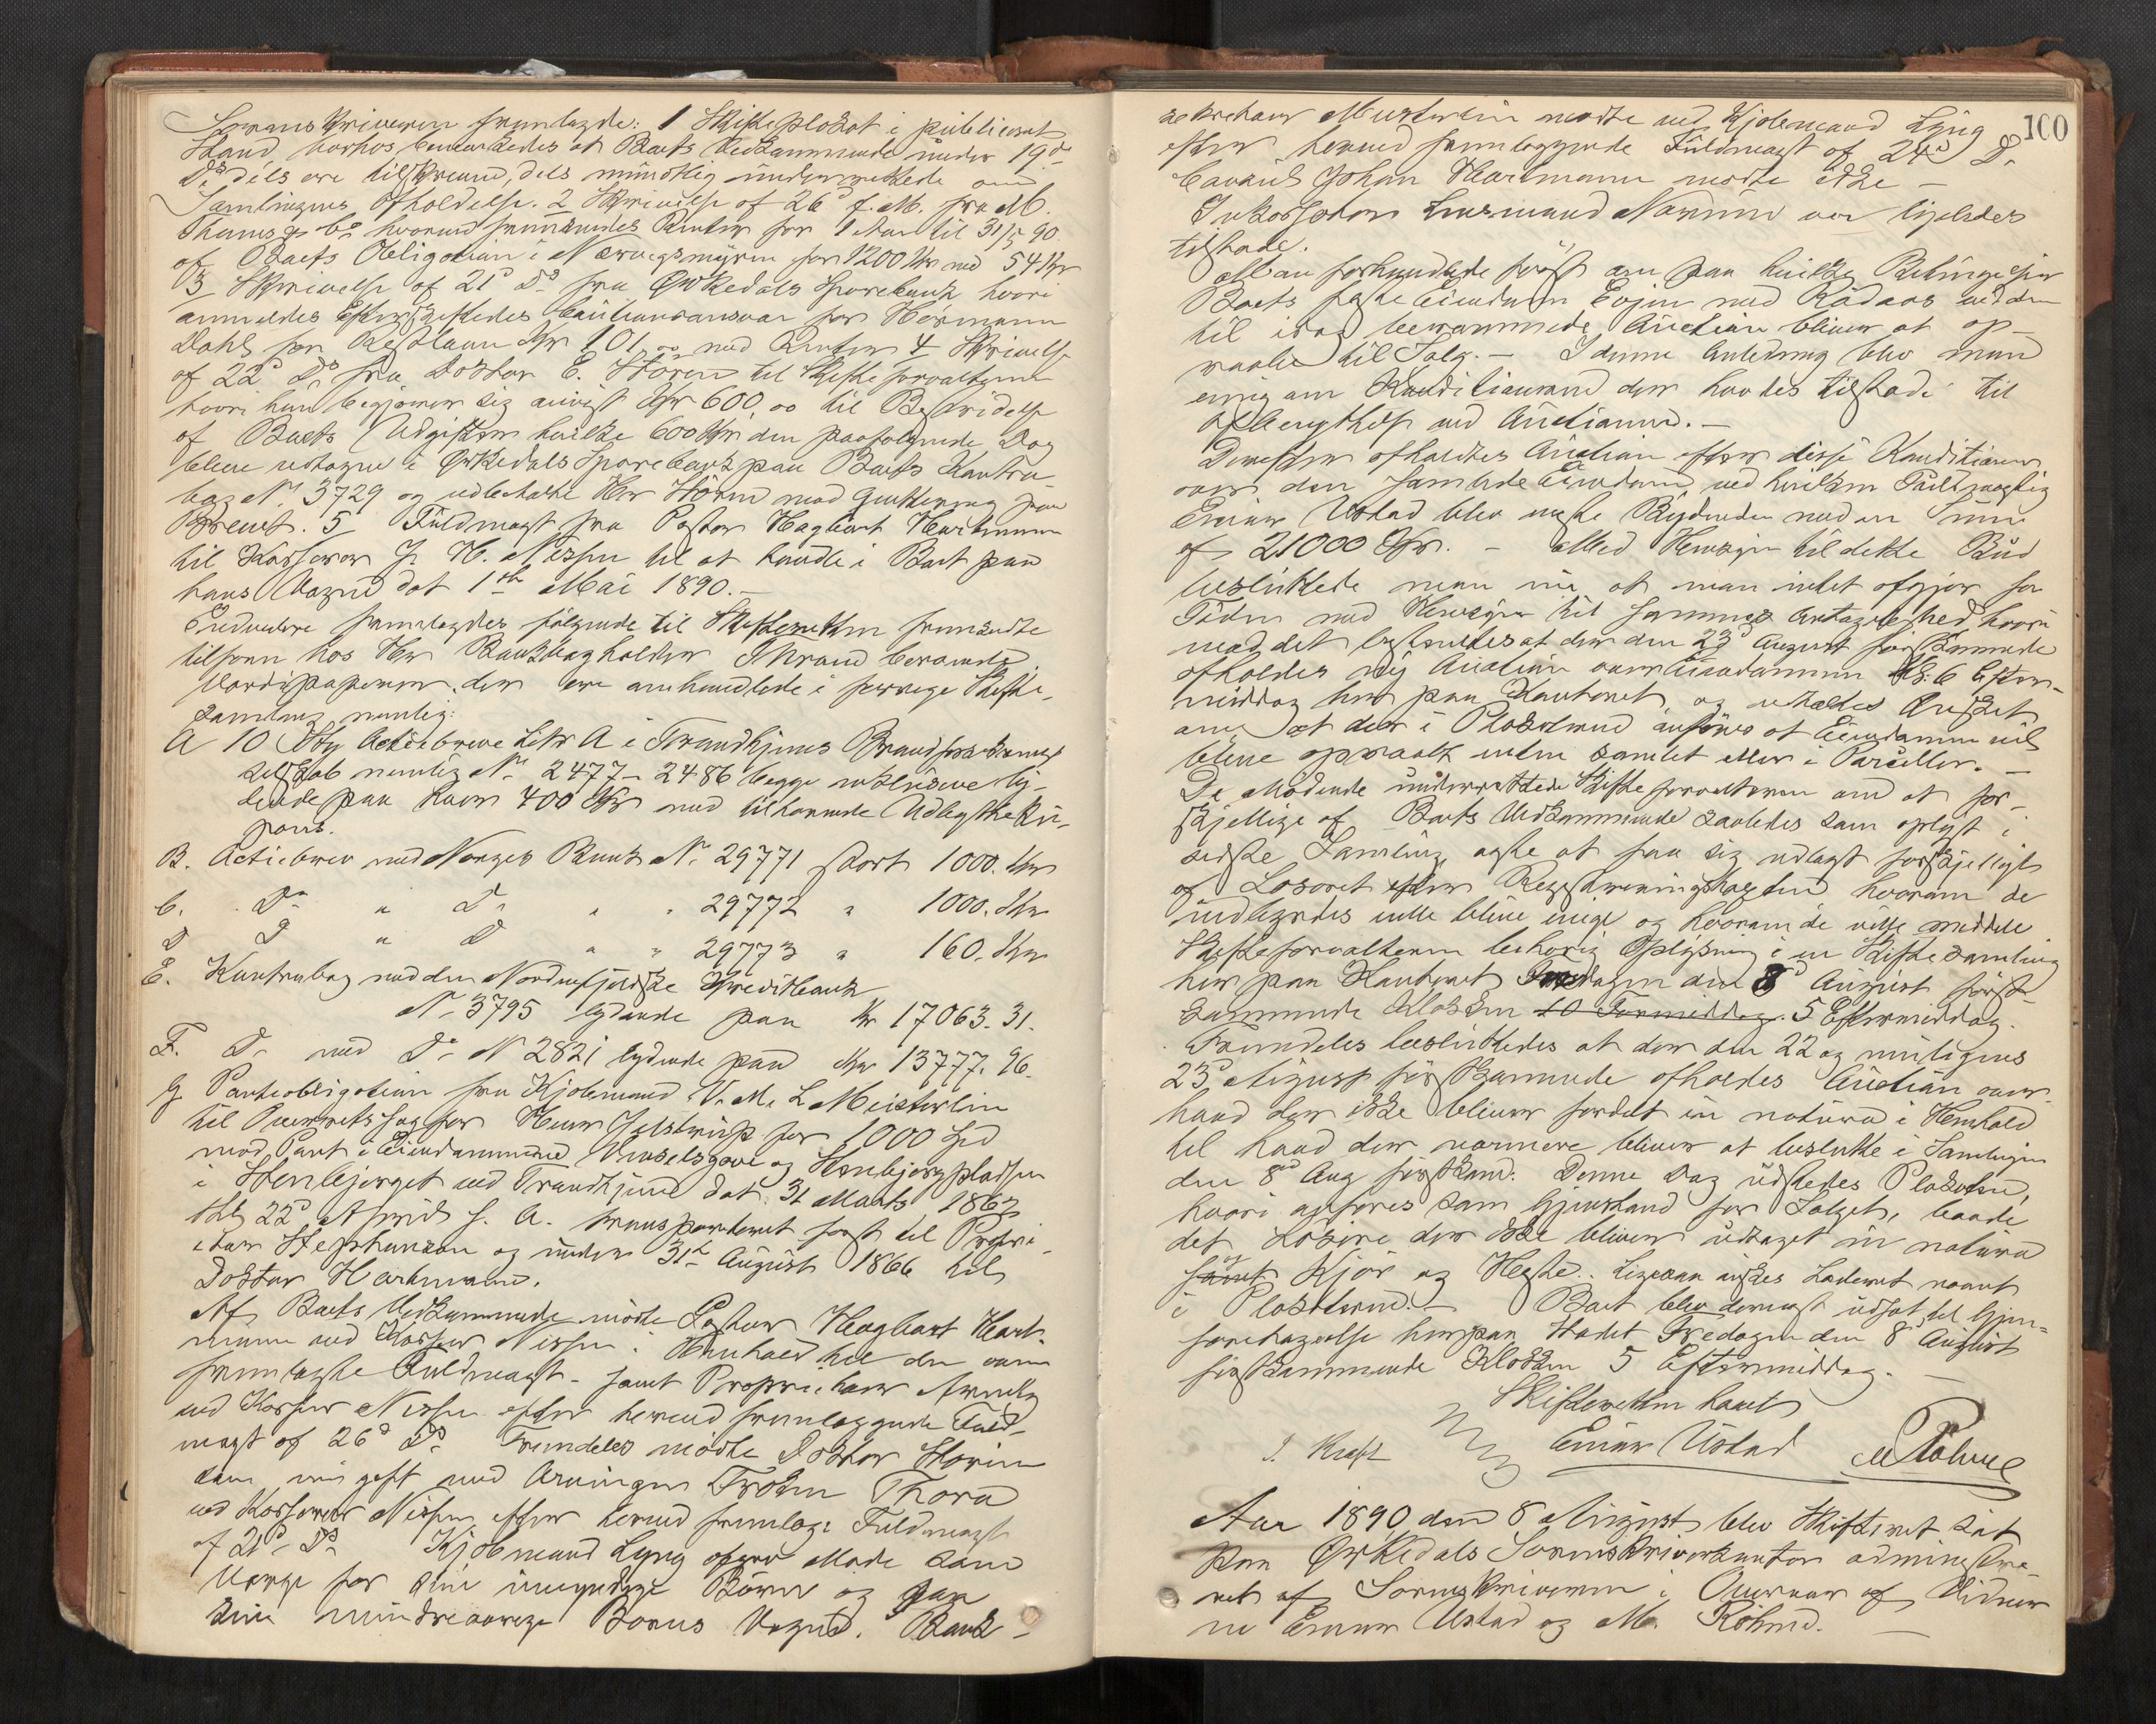 Sorenskriveren fremlagde: 1 Skifteplakat i publiceret
Stand, hvorhos bemærkedes at Boets Vedkommende under 19de
Ds dels ere tilskrevne, dels mundtlig underrettede om
Samlingens Afholdelse. 2 Skrivelse af 26d f. M. fra M.
Thams & Co hvormed fremsendes Renter for 1 Aar til 31/5 90
af Boets Obligation i Nervegsmyren for 1200 Kr med 54 Kr
3 Skrivelse af 21d Ds fra Ørkedals Sparebank hvori
anmeldes Efterskeftedes Cautionsansvar for Hermann
Dahl for Restlaan Kr 101,00 med Renter 4 Skrivelse
af 22d Ds fra Doktor E. Støren til Skifteforvalteren
hvori han begjærer sig anvist Kr 600,00 til Bestridelse
af Boets Udgifter hvilke 600 Kr den paafølgende Dag
bleve udtagne i Ørkedals Sparebank paa Boets Kontra-
bog No 3729 og udbetalte Hr Støren mod Qvittering paa
Brevet. 5 Fuldmagt fra Pastor Hagbart Hartmann
til Kasserer J. H. Nissen til at handle i Boet paa
hans Vegne dat 1ste Mai 1890. —
Endvidere fremlagdes følgende til Skifteretten fremsendte
tilforn hos Hr Bankbogholder Strand beroende
Værdipapirer, der ere omhandlede i forrige Skifte-
samling nemlig:
A 10 Stk Actiebreve Litr A i Trondhjems Brandforsikrings
selskab nemlig No 2477 - 2486 begge inklusive ly-
dende paa hver 400 Kr med tilhørende Udbytteku-
pons.
B. Actiebrev med Norges Bank No 29771 stort 1000. Kr
C. Do " Do " " 29772 " 1000. Kr
D D " D " " 29773 " 160. Kr
E. Kontrabog med den Nordenfjeldske Kreditbank
No 3795 lydende paa Kr 17063.31.
F. Do med Do No 2821 lydende paa Kr 13777.96.
G Panteobligation fra Kjøbmand V. M. L Meisterlin
til Overretssagfører Jelstrup for 1000 Spd
mod Pant i Eiendommene Venselsgave og Stenbjergpladsen
i Stenbjerget ved Trondhjem dat. 31 Marts 1863
thl 22d April s. A. transporteret først til Propri-
etær Stephansen og under 31te August 1866 til
Doktor Hartmann.
Af Boets Vedkommende mødte Pastor Hagbart Hart-
mann ved Kasserer Nissen i Henhold til den oven
fremlagte Fuldmagt - samt Proprietær
ved Kasserer Nissen efter herved fremlæggende Fuld-
magt af 26d Ds Fremdeles mødte Doktor Støren
som er gift med Arvingen Frøken Thora
ved Kasserer Nissen efter herved fremlagt Fuldmagt
af 21d Ds Kjøbmand Lyng afgav Møde som
Værge for sine umyndige Børn og paa
sine mindreaarige Børns Vegne. Bank-
100
sekretær Meisterlin mødte ved Kjøbmand Lyng
efter herved fremlæggende Fuldmagt af 24d Ds
Johan Hartmann mødte ikke —
Inkassator Lensmand Narum var ligeledes
tilstede.
Man forhandlede først om paa hvilke Betingelser
Boets faste Eiendom Evjen med Raadaas ved den
til idag berammede Auction bliver at op-
raabe til Salg. — I denne Anledning blev man
enig om Konditionerne der havdes tilstede til
Afbenyttelse ved Auctionen. —
Derefter afholdtes Auction efter disse Konditioner
over den samlede Eiendom ved hvilken Fuldmægtig
Einar Ustad blev høieste Bydende med en Sum
af 21000 Kr. — Med Hensyn til dette Bud
besluttede man nu, at man intet afgjør for
Tiden med Hensyn til sammes Antagelighed, hvori
mod det bestemtes at der den 23d August førstkommende
afholdes ny Auction over Eiendommen Kl. 6 Efter-
middag her paa Kontoret, og udtaltes Ønsket
om, at der i Plakaterne anføres at Eiendommen vil
blive opraabt enten samlet eller i Parceller. —
De Mødende underrettede Skifteforvalteren om at for-
skjellige af Boets Vedkommende saaledes som oplyst i
sidste Samling agte at faa sig udlagt forskjelligt
af Løsøret efter Registreringstaxten hvorom de
indbyrdes ville blive enige og hvorom de ville meddele
Skifteforvalteren behørig Oplysning i en Skiftesamling
her paa Kontoret Fredagen den 8d August først-
kommende Klokken 10 Formiddag. 5 Eftermiddag.
Fremdeles besluttedes at der den 22 og muligens
23d August førstkommende afholdes Auction over
hvad der ikke bliver fordelt in natura i Henhold
til hvad der nærmere bliver at beslutte i Samlingen
den 8de Aug førstkom. Denne Dag udstedes Plakaten,
hvori anføres som Gjenstand for Salget, baade
det Løsøre der ikke bliver udtaget in natura
samt og Kjør og Heste. Ligesaa ønskes Landeret nævnt
i Plakaterne. — Boet blev dernæst udsat til Gjen-
foretagelse her paa Stedet Fredagen den 8d August
førstkommende Klokken 5 Eftermiddag. —
Skifteretten hævet
J. Kraft Einar Ustad M Røhme
Aar 1890 den 8 August blev Skifteret sat
paa Ørkedals Sorenskriverkontor administre-
ret af Sorenskriveren i Overvær af Vidner-
ne Einar Ustad og M. Røhme. —